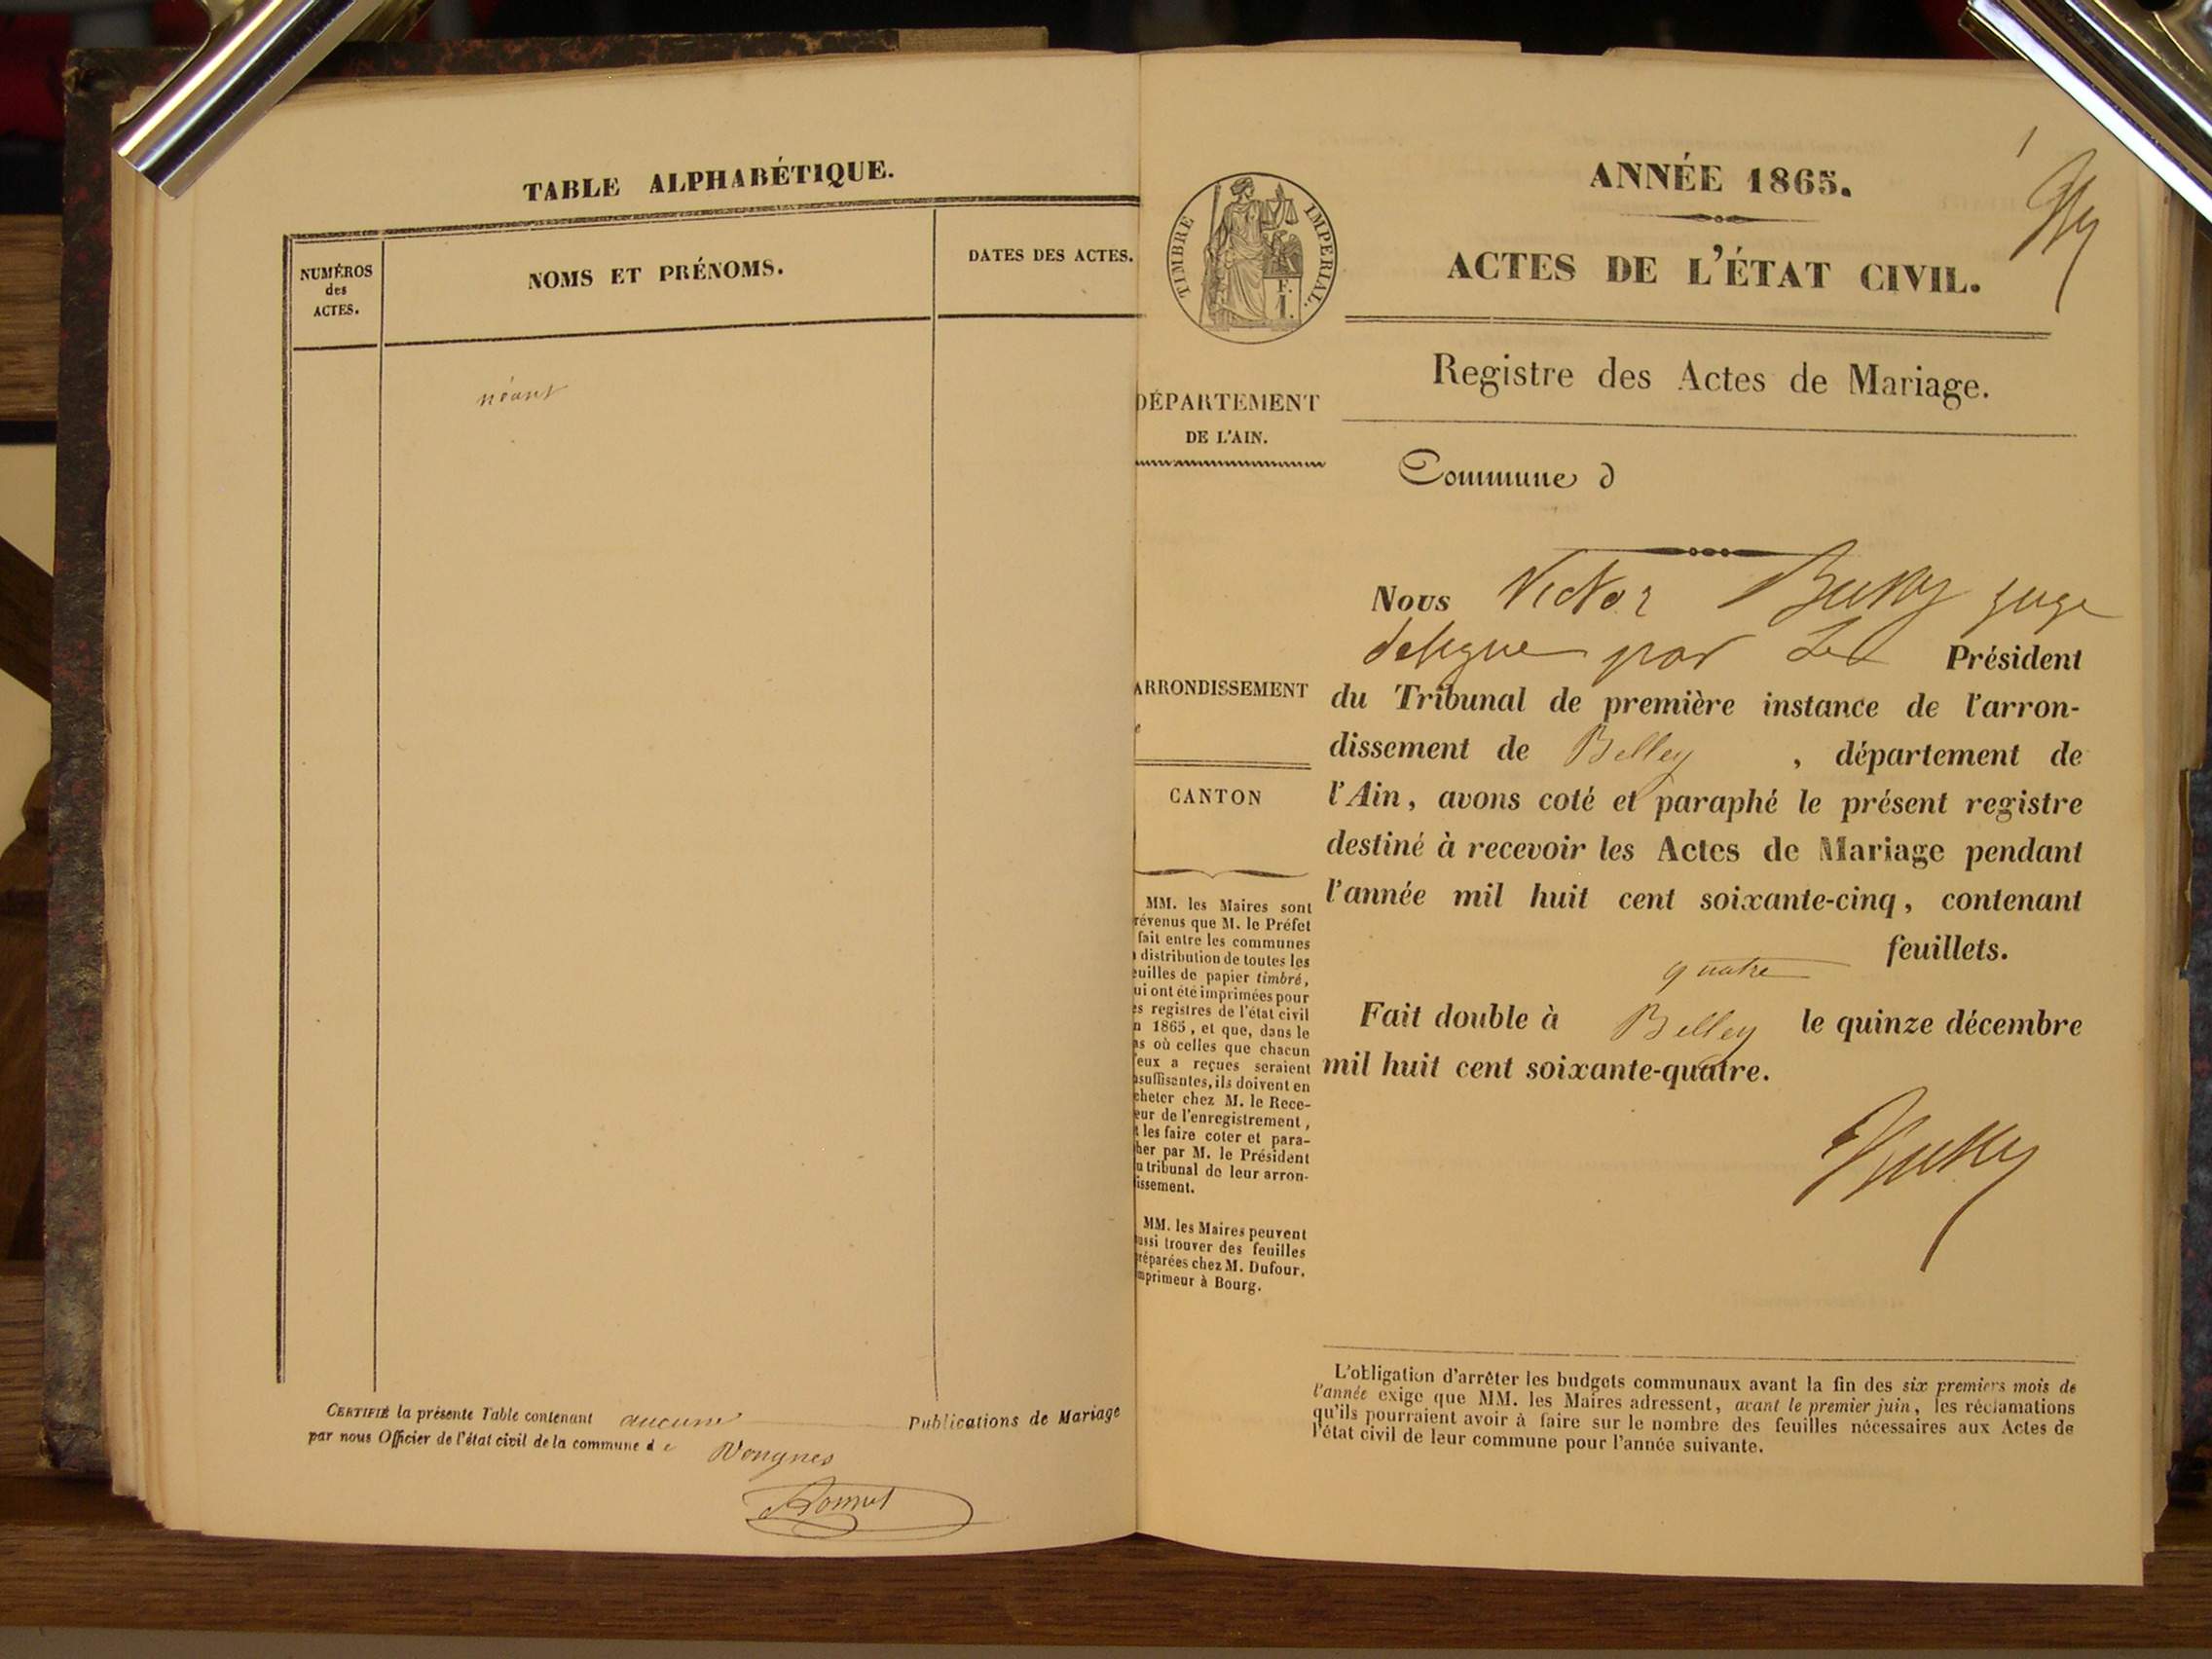 TABLE ALPHABÉTIQUE.
NUMÉROS
des
ACTES.
NOMS ET PRÉNOMS.
DATES DES ACTES.
néant
CERTIFIÉ la présente Table contenant aucune Publications de Mariage
par nous Officier de l'état civil de la commune de Vongnes
TIMBRE IMPERIAL.
F.
1.
ANNÉE 1865.
1
ACTES DE L'ÉTAT CIVIL.
Registre des Actes de Mariage.
DÉPARTEMENT
DE L'AIN.
Commune d
ARRONDISSEMENT
CANTON
MM. les Maires sont
révenus que M. le Préfet
fait entre les communes
distribution de toutes les
euilles de papier timbré,
ui ont été imprimées pour
es registres de l'état civil
n 1865, et que, dans le
as où celles que chacun
'eux a reçues seraient
nsuffisantes, ils doivent en
cheter chez M. le Rece-
eur de l'enregistrement,
t les faire coter et para-
her par M. le Président
u tribunal de leur arron-
issement.
MM. les Maires peuvent
ussi trouver des feuilles
réparées chez M. Dufour,
mprimeur à Bourg.
Nous Victor juge
delegue par Le Président
du Tribunal de première instance de l'arron-
dissement de Belley, département de
l'Ain, avons coté et paraphé le présent registre
destiné à recevoir les Actes de Mariage pendant
l'année mil huit cent soixante-cinq, contenant
quatre feuillets.
Fait double à Belley le quinze décembre
mil huit cent soixante-quatre.
L'obligation d'arrêter les budgets communaux avant la fin des six premiers mois de
l'année exige que MM. les Maires adressent, avant le premier juin, les réclamations
qu'ils pourraient avoir à faire sur le nombre des feuilles nécessaires aux Actes de
l'état civil de leur commune pour l'année suivante.